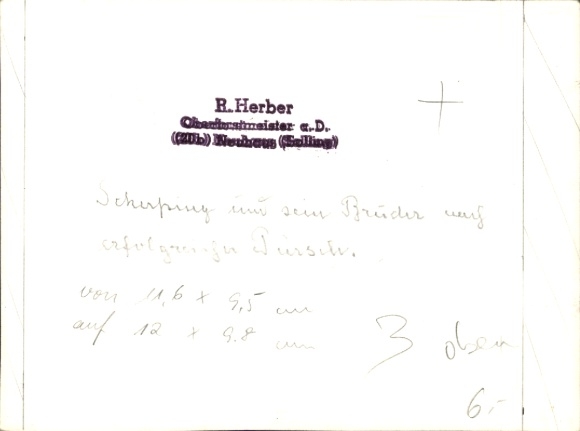 R. Herber
Oberforstmeister a.D.
(20b) Neuhaus (Solling)
Scherping und sein Bruder nach
erfolgreicher Pürsch.
von 11,6 x 9,5 cm
auf 12 x 9.8 cm
3 oben
6.-